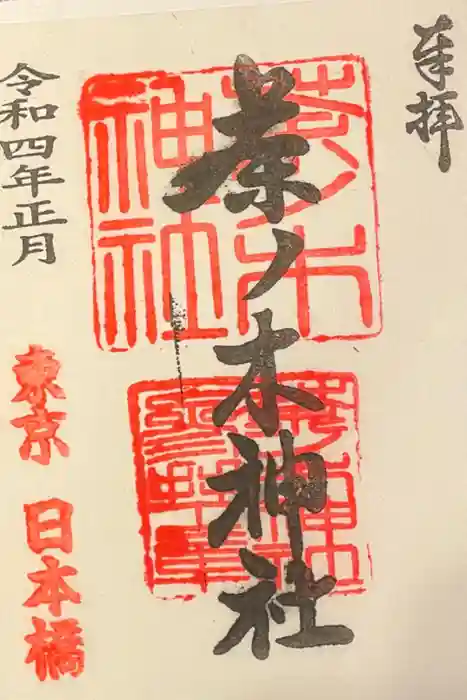 奉拝
茶ノ木神社
茶木
神社
令和四年正月
東京 日本橋